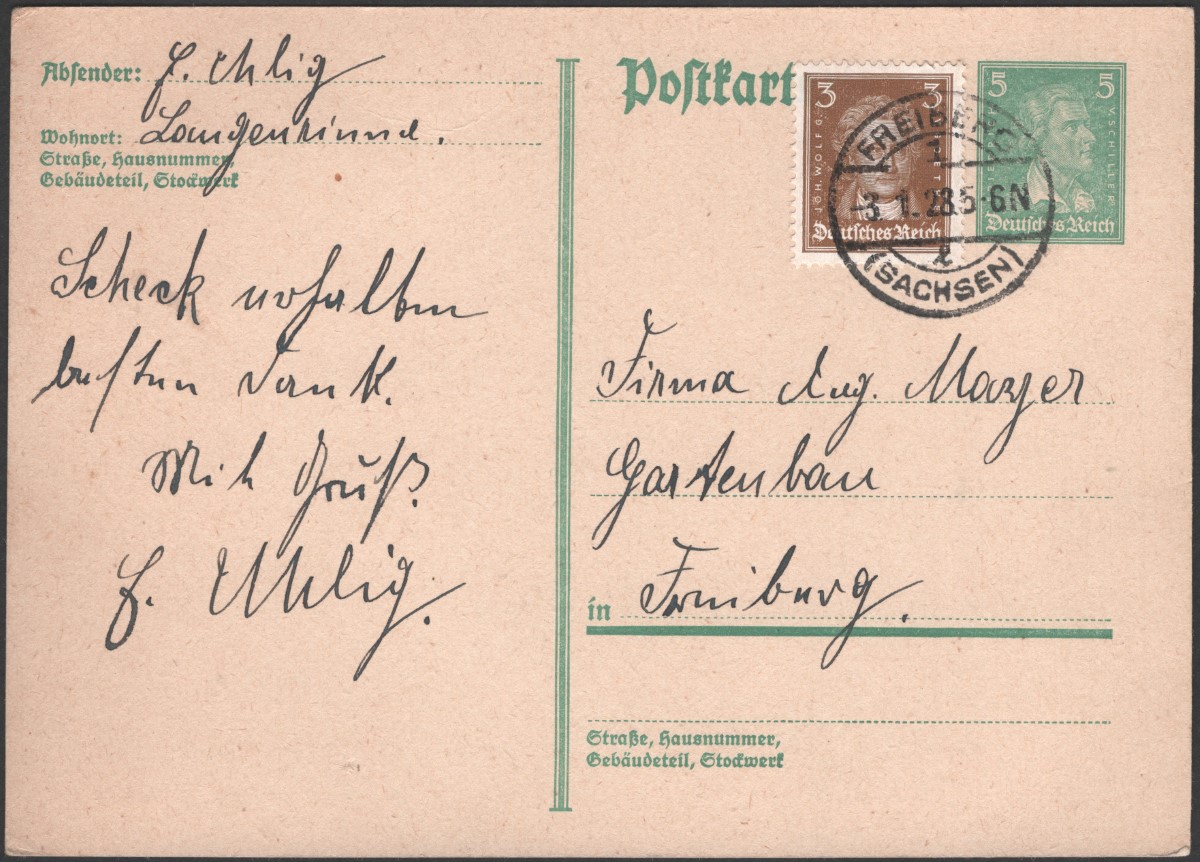 Absender: E. Uhlig
Wohnort: Langenrinne.
Straße, Hausnummer,
Gebäudeteil, Stockwerk
Scheck erhalten
besten Dank.
Mit Gruß.
E. Uhlig.
Postkart
3 3
JOH. WOLFG.
Deutsches Reich
5 5
V. SCHILLER
Deutsches Reich
FREIBERG
1
-3.1.28.5-6N
(SACHSEN)
Firma Aug.
Gartenbau
in Freiberg.
Straße, Hausnummer,
Gebäudeteil, Stockwerk